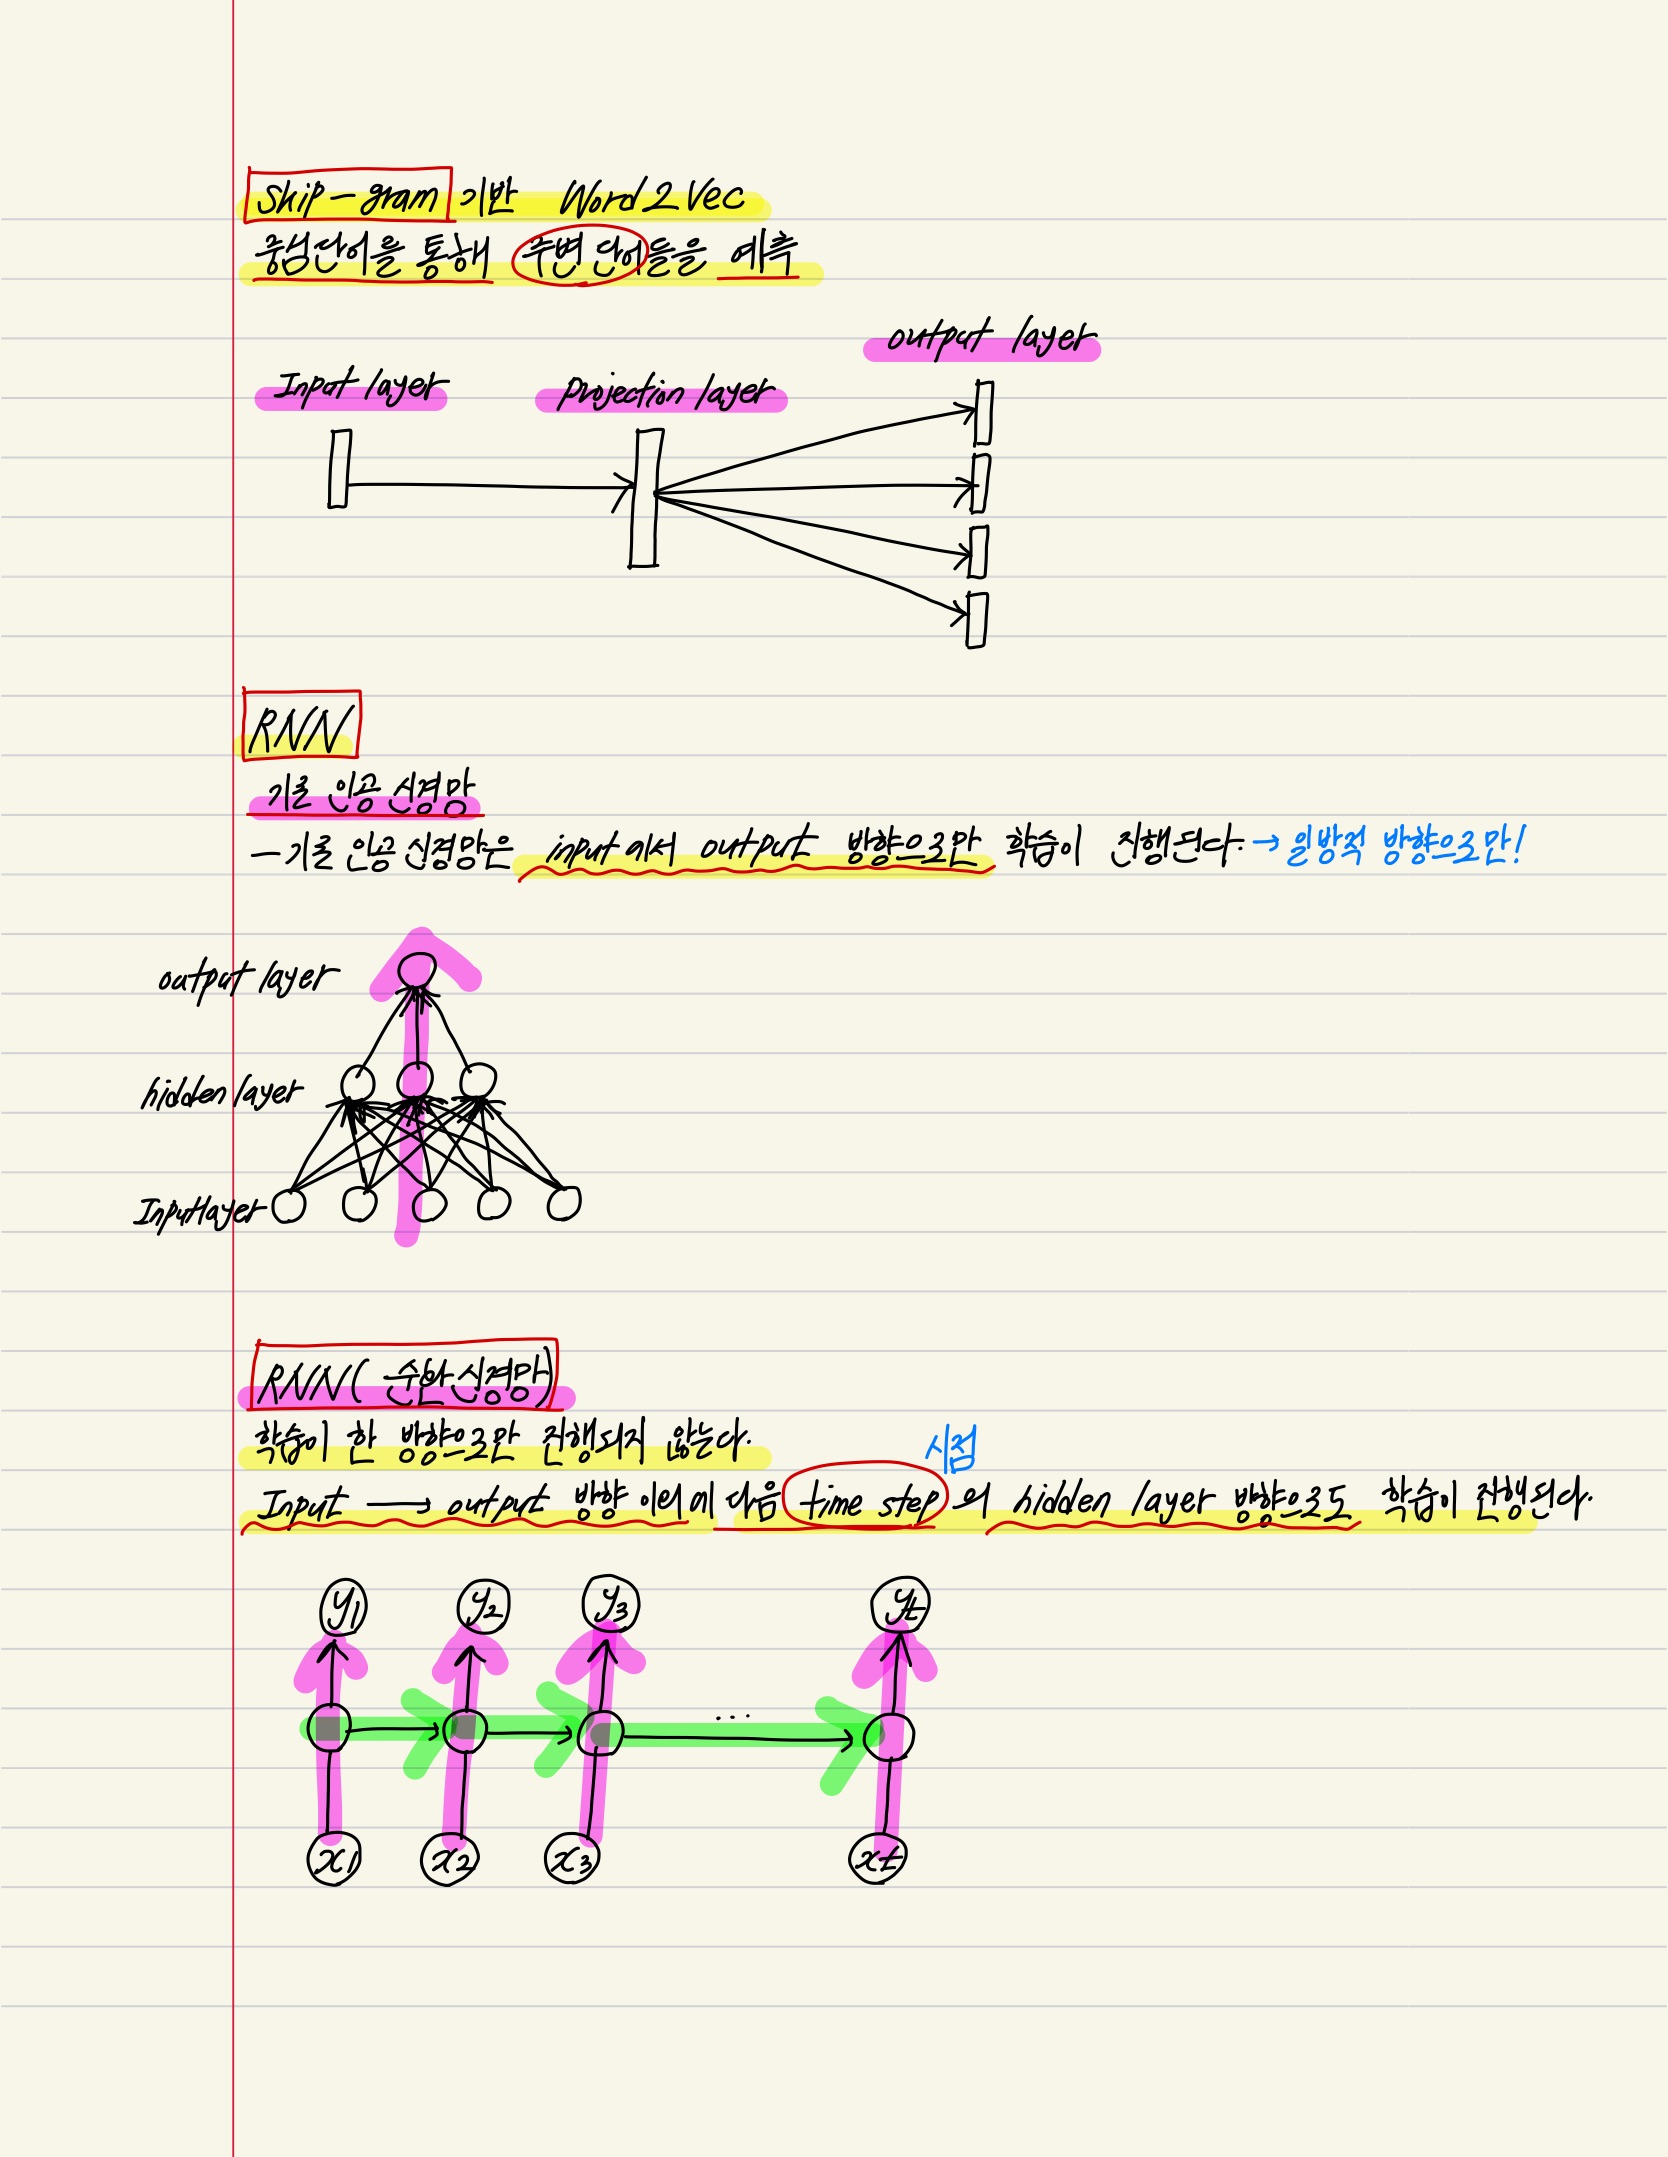 Skip-gram 기반 Word2Vec
중심단어을 통해 주변 단어들을 예측
output layer
Input layer projection layer
RNN
기존 인공 신경망
- 기존 인공 신경망은 input에서 output 방향으로만 학습이 진행된다. → 일방적 방향으로만!
output layer
hidden layer
Input layer
RNN( 순환신경망)
학습이 한 방향으로만 진행되지 않는다.
시점
Input → output 방향 이외에 다음 time step의 hidden layer 방향으로도 학습이 진행된다.
y1 y2 y3 yt
...
x1 x2 x3 xt